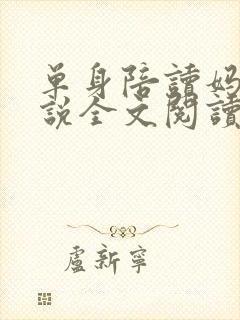 單身陪讀媽
說全文閱讀
盧新寧